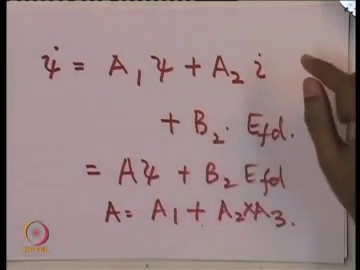 ψ̇ = A₁ψ + A₂ i
+ B₂ . E_fd.
= Aψ + B₂ E_fd
A = A₁ + A₂×A₃.
NPTEL